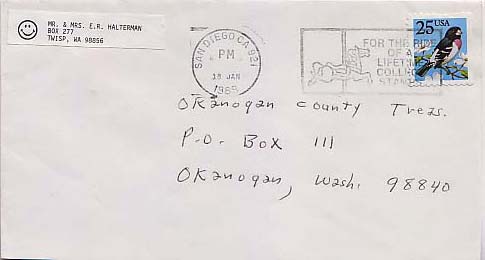 MR. & MRS. E.R. HALTERMAN
BOX 277
TWISP, WA 98856
SAN DIEGO CA 921
PM
18 JAN
1989
FOR THE RIDE
OF A
LIFETIME
COLLECT
STAMPS
25 USA
Okanogan County Treas.
P.O. Box 111
Okanogan, Wash. 98840